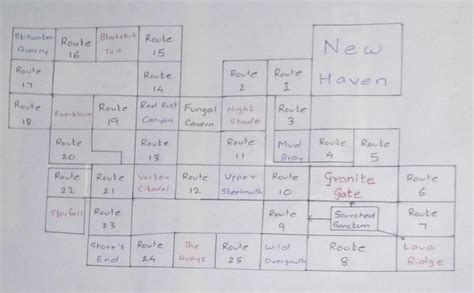 Stillwater Quarry
Route 16
Route 15
New Haven
Route 17
Route 14
Route 2
Route 1
Route 18
Everbloom
Route 19
Red Rust Canyon
Fungal Cavern
Night Shade
Route 3
Route 20
Route 13
Route 11
Mud Bray
Route 4
Route 5
Route 22
Route 21
Vortex Citadel
Route 12
Upper Steelmouth
Route 10
Granite Gate
Route 6
Starfall
Route 23
Route 9
Sanctum
Route 7
Shore's End
Route 24
The Quays
Route 25
Wild Overgrowth
Route 8
Lava Ridge